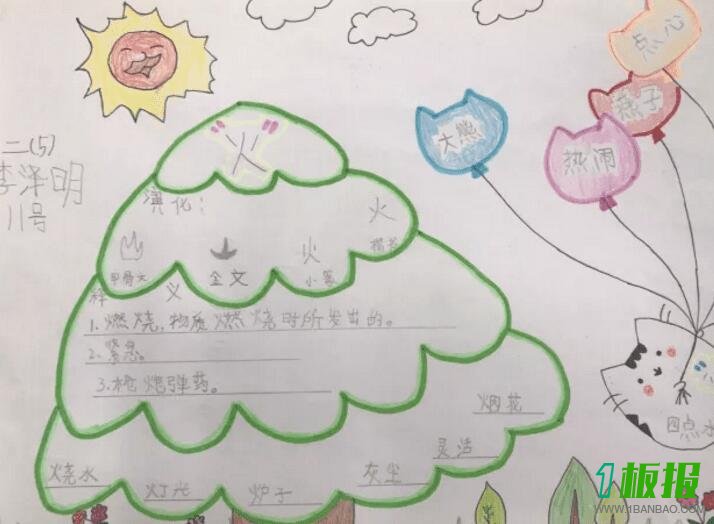 二(5)
李泽明
11号
火
演化：
甲骨文
金文
小篆
火
火
楷书
释义
1.燃烧，物质燃烧时所发出的。
2.紧急。
3.枪炮弹药。
烧水
灯光
炉子
灰尘
灵活
烟花
大熊
热闹
燕子
点心
四点水
1板报
WWW.1BANBAO.COM